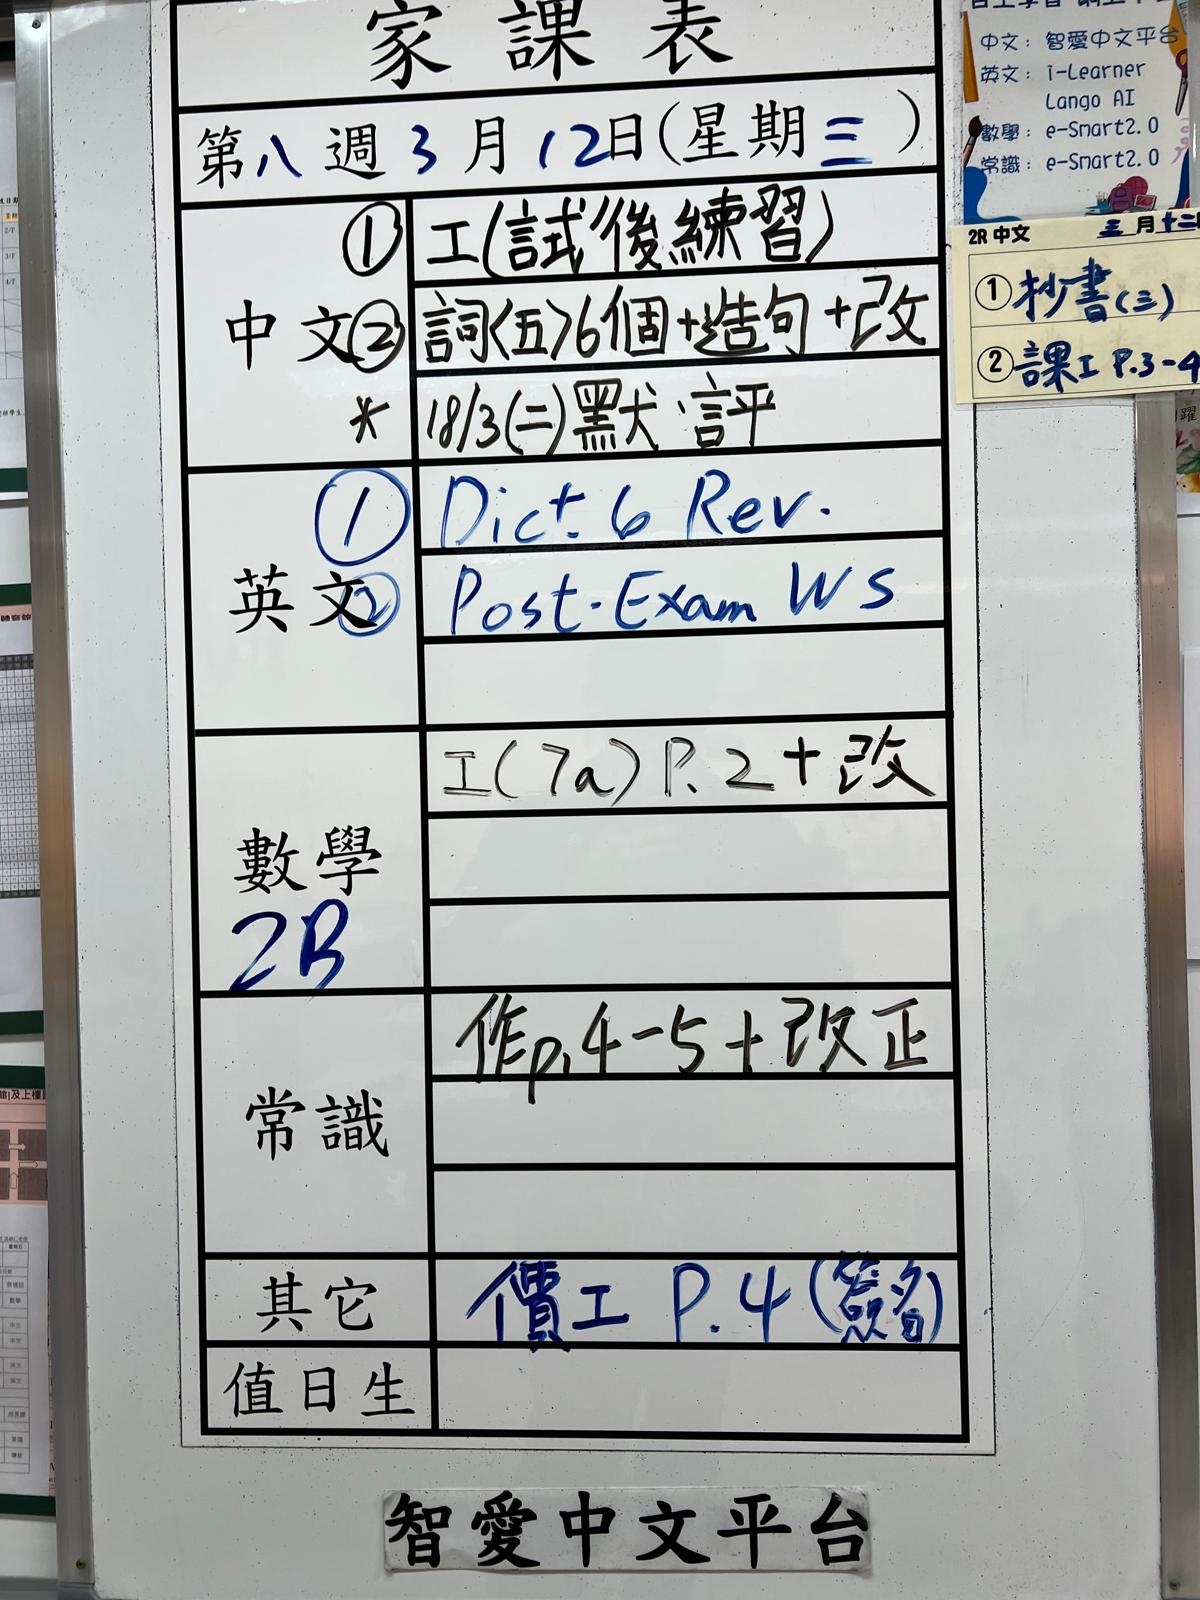 家課表
第八週3月12日(星期三)
中文
① 工(試後練習)
② 詞<五>6個+造句+改
* 18/3(二)默·評
英文
① Dict. 6 Rev.
② Post-Exam WS
數學
2B
工(7a) P.2+改
常識
作p.4-5+改正
其它
價工 P.4(簽名)
值日生
智愛中文平台
中文：智愛中文平台
英文：i-Learner
Lango AI
數學：e-Smart2.0
常識：e-Smart2.0
2R 中文 三月十二
① 抄書(三)
② 課工 P.3-4